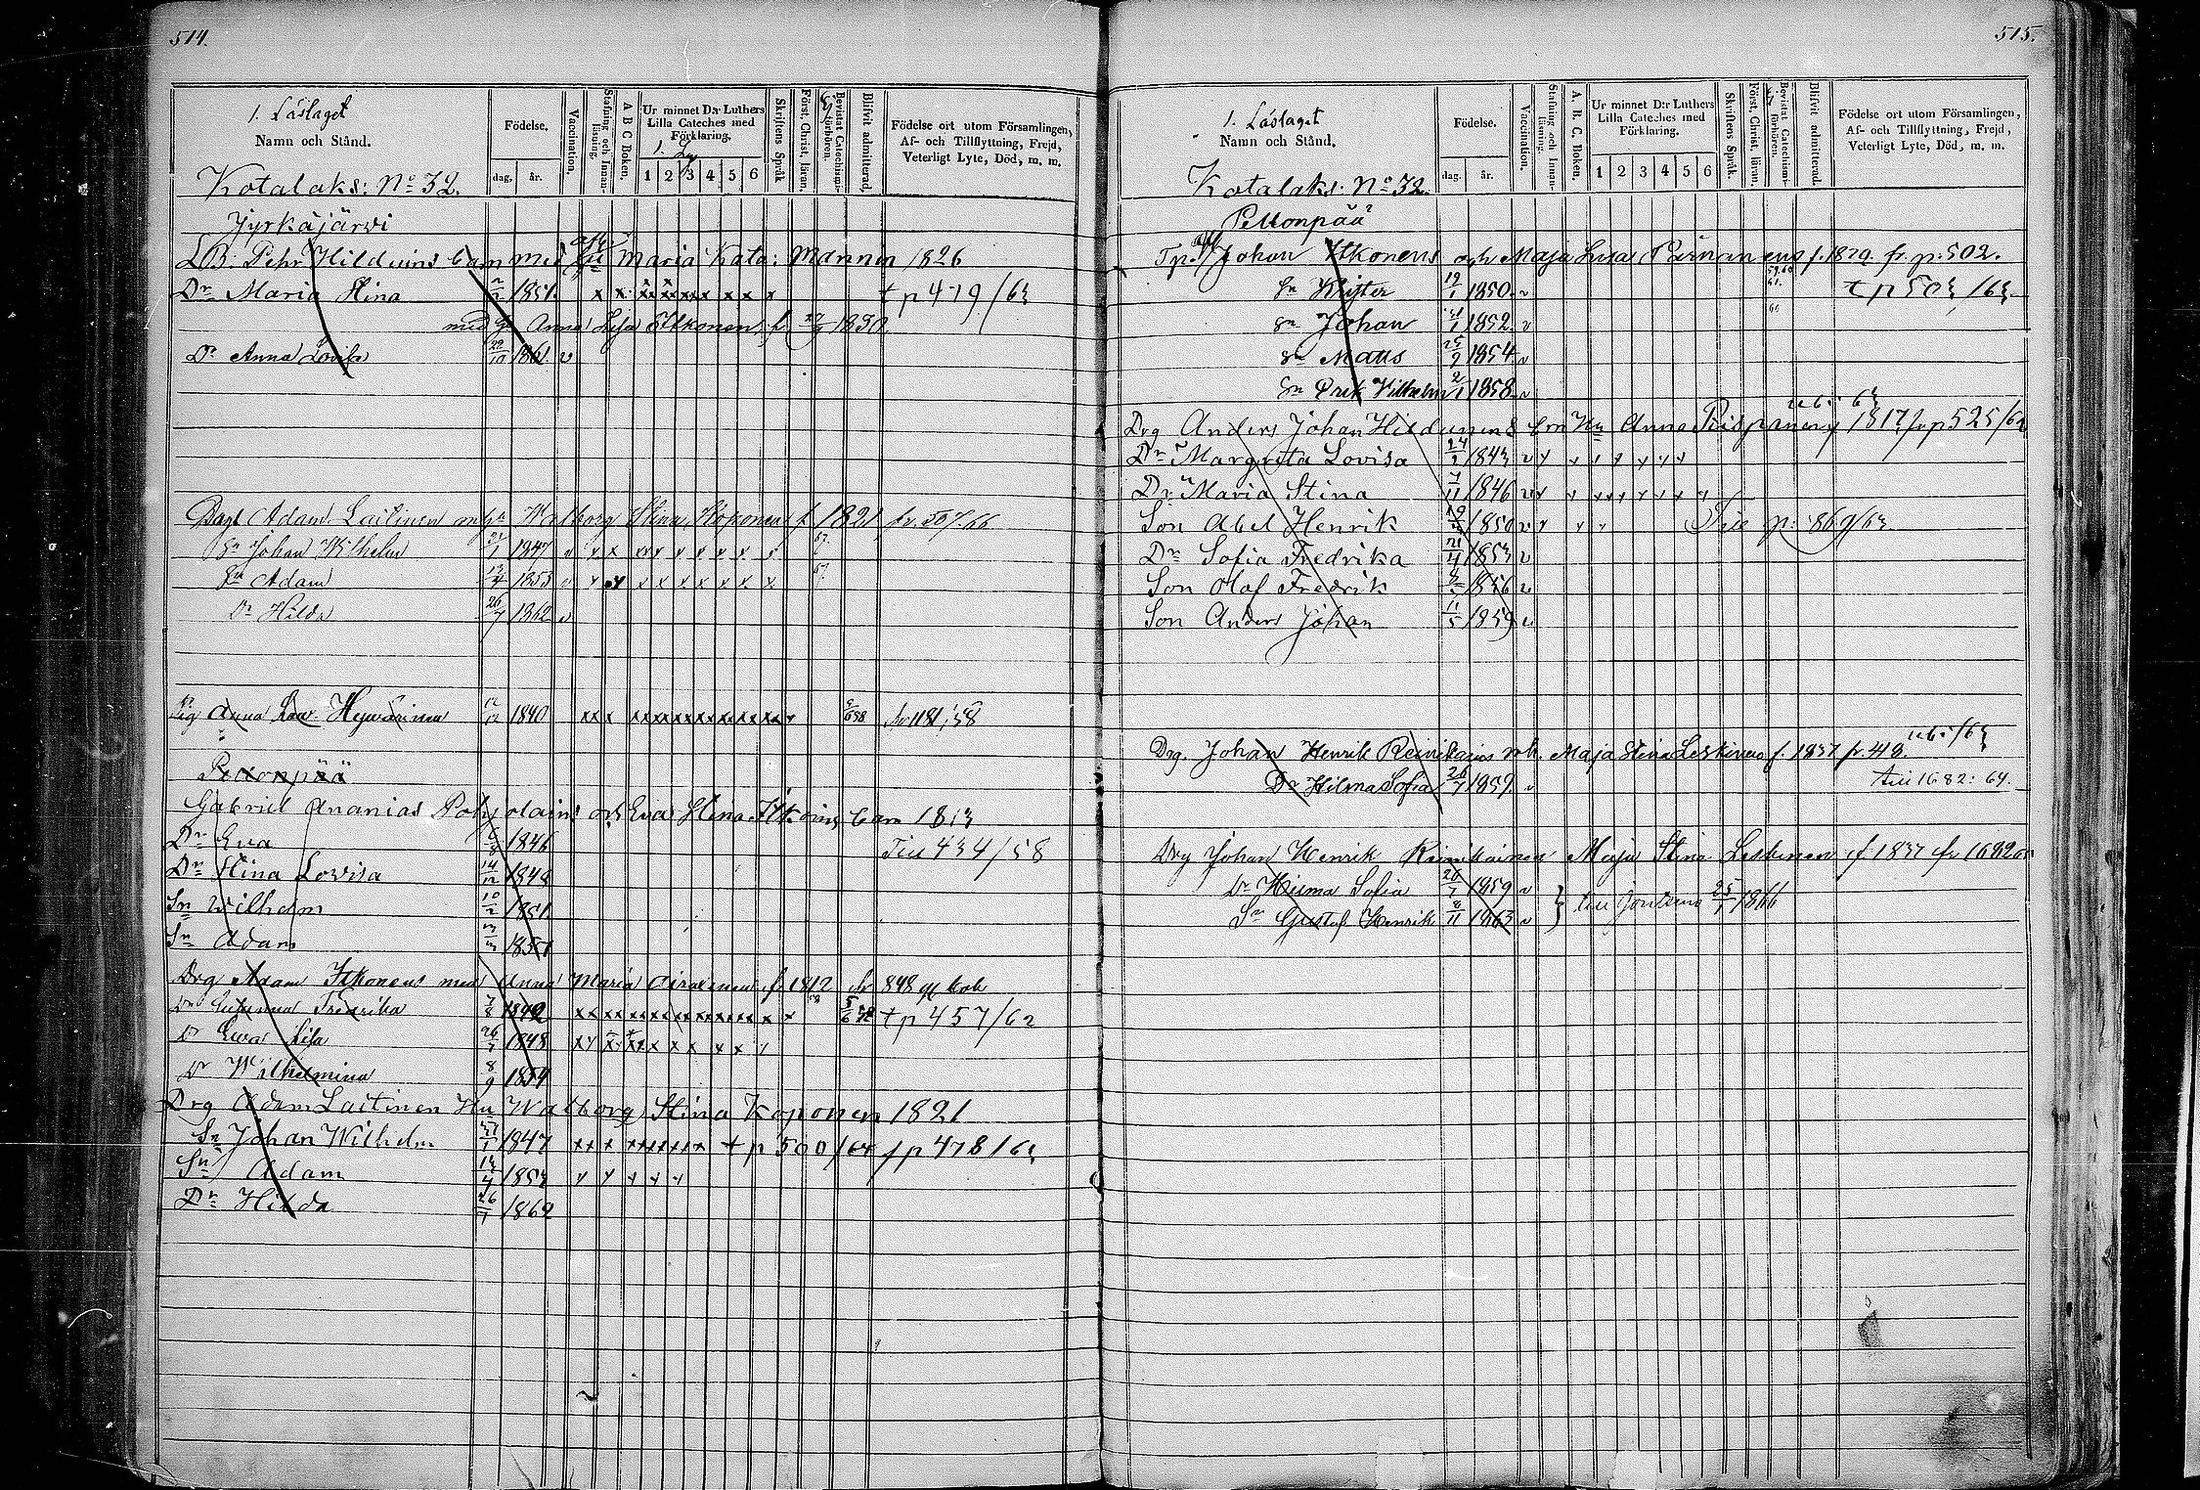 514.
1. Läslaget
Namn och Stånd.
Födelse.
dag. år.
Vaccination.
Stafning och Innanläsning.
A B C Boken.
Ur minnet D:r Luthers Lilla Cateches med Förklaring.
1 2 3 4 5 6
Skriftens Språk
Först. Christ. läran.
Bevistat Catechismiförhören.
Blifvit admitterad.
Födelse ort utom Församlingen, Af- och Tillflyttning, Frejd, Veterligt Lyte, Död, m. m.
Kotalaks: No 32.
Jyrkäjärvi
LB: Pehr Hilduins barn med Maria Kata: Manninen 1826
Dr Maria Stina 1851. x x x x x x x x x t p 479/63
med Anna Lisa Itkonen f. 1830
Dr Anna Lovisa 22/10 1861. v
Adam Laitinen m hu Walborg Stina Koponen f. 1821 fr. 507.66
Sn Johan Wilhelm 27/1 1847 v
Sn Adam 13/4 1853 v
Dr Hilda 26/7 1862 v
Pig Anna Hyvärinen 1840 xxx xxxxxxxxxxxx
Pettonpää
Gabriel Ananias Pohjolains och Eva Stina Itkoins barn 1813
Dr Eva 6/8 1846 Till 434/58
Dr Stina Lovisa 14/12 1848
Sn Wilhelm 10/2 1851
Sn Adam
Drg Adam Itkonens med Anna Maria Airaxinen f 1812 fr 848
Dr Fredrika 7/8 1842 t p 457/62
Dr Ewa Lisa 26/7 1848
Dr Wilhelmina 8/9 1854
Drg Adam Laitinen Hu Walborg Stina Koponen 1821
Sn Johan Wilhelm 27/1 1847 t p 500/64 f p 478/63
Sn Adam 13/4 1853
Dr Hilda 26/7 1862
515.
1. Läslaget
Namn och Stånd.
Födelse.
dag. år.
Vaccination.
Stafning och Innanläsning.
A. B. C. Boken.
Ur minnet D:r Luthers Lilla Cateches med Förklaring.
1 2 3 4 5 6
Skriftens Språk.
Först. Christ. läran.
Bevistat Catechismiförhören.
Blifvit admitterad.
Födelse ort utom Församlingen, Af- och Tillflyttning, Frejd, Veterligt Lyte, Död, m. m.
Kotalaks: No 32.
Pettonpää
Johan Itkonens och Maja Lisa Pärnänens f. 1829. fr. p. 502.
Sn Krister 19/1 1850. v t p 503/63
Sn Johan 21/1 1852. v
Sn Matts 25/9 1854 v
Sn Erik Vilhelm 2/1 1858 v
Drg Anders Johan Hildunens bn Hu Anna Piispanen f 1817. fr p 525/62
Dr Margreta Lovisa 24/2 1843 v
Dr Maria Stina 7/11 1846 v
Son Abel Henrik 19/3 1850 v Till p: 869/63
Dr Sofia Fredrika 21/4 1853 v
Son Olof Fredrik 1856 v
Son Anders Johan 11/5 1859 v
Drg. Johan Henrik Reinikains och Maja Stina Leskinens f. 1837 fr. 418.
Dr Hilma Sofia 26/7 1859. v till 1682: 64.
Drg Johan Henrik Reinikainen Maja Stina Leskinen f 1837 fr 1682
Dr Hilma Sofia 26/7 1859 v
Sn Gustaf Henrik 8/11 1863 v till Joutsens 25/1 1866